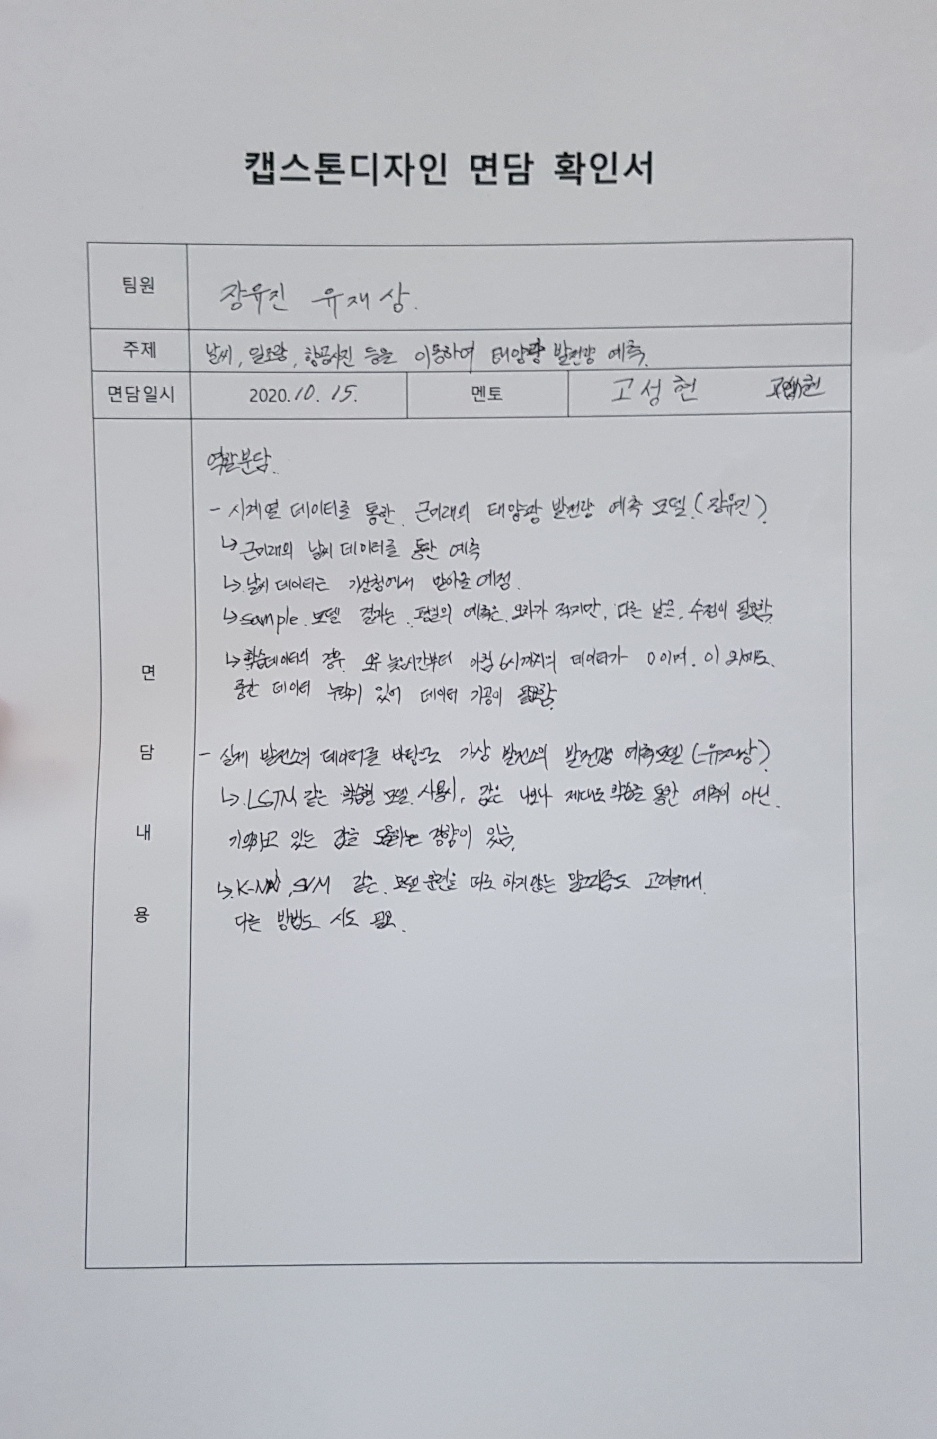 캡스톤디자인 면담 확인서
팀원 장유진 유재상.
주제 날씨, 일조량, 항공사진 등을 이용하여 태양광 발전량 예측.
면담일시 2020.10.15. 멘토 고성현 고성현
면담내용
역할분담.
- 시계열 데이터를 통한 근미래의 태양광 발전량 예측 모델. (장유진)
↳ 근미래의 날씨 데이터를 통한 예측
↳ 날씨 데이터는 기상청에서 받아올 예정.
↳ sample 모델 결과는 평일의 예측은 오차가 적지만, 다른 날은, 수정이 필요함.
↳ 학습데이터의 경우 오후 늦은시간부터 아침 6시까지의 데이터가 0이며. 이 외에도.
중간 데이터 누락이 있어 데이터 가공이 필요함.
- 실제 발전소의 데이터를 바탕으로 가상 발전소의 발전량 예측모델 (유재상)
↳ LSTM 같은 학습형 모델 사용시, 값은 나오나 제대로 학습을 통한 예측이 아닌.
기억하고 있는 값을 도출하는 경향이 있음.
↳ K-NN, SVM 같은 모델 훈련을 따로 하지않는 알고리즘도 고려해서
다른 방법도 시도 필요.